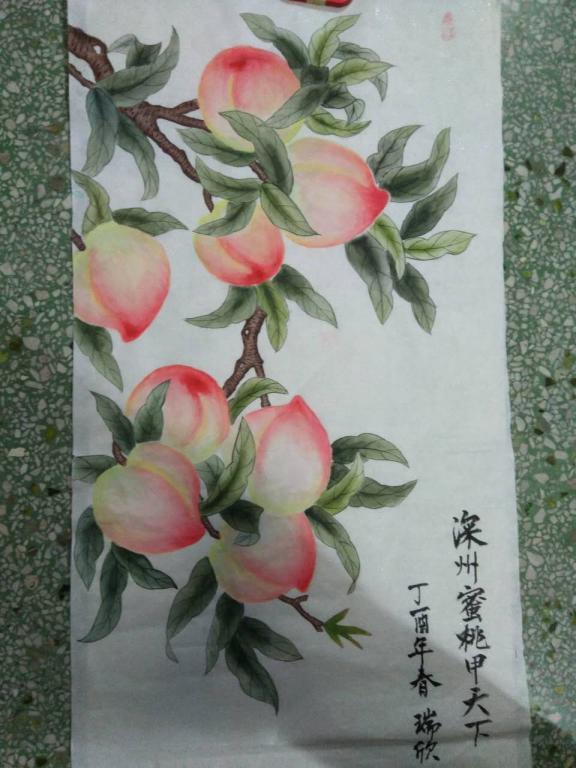 深州蜜桃甲天下
丁酉年春 瑞欣